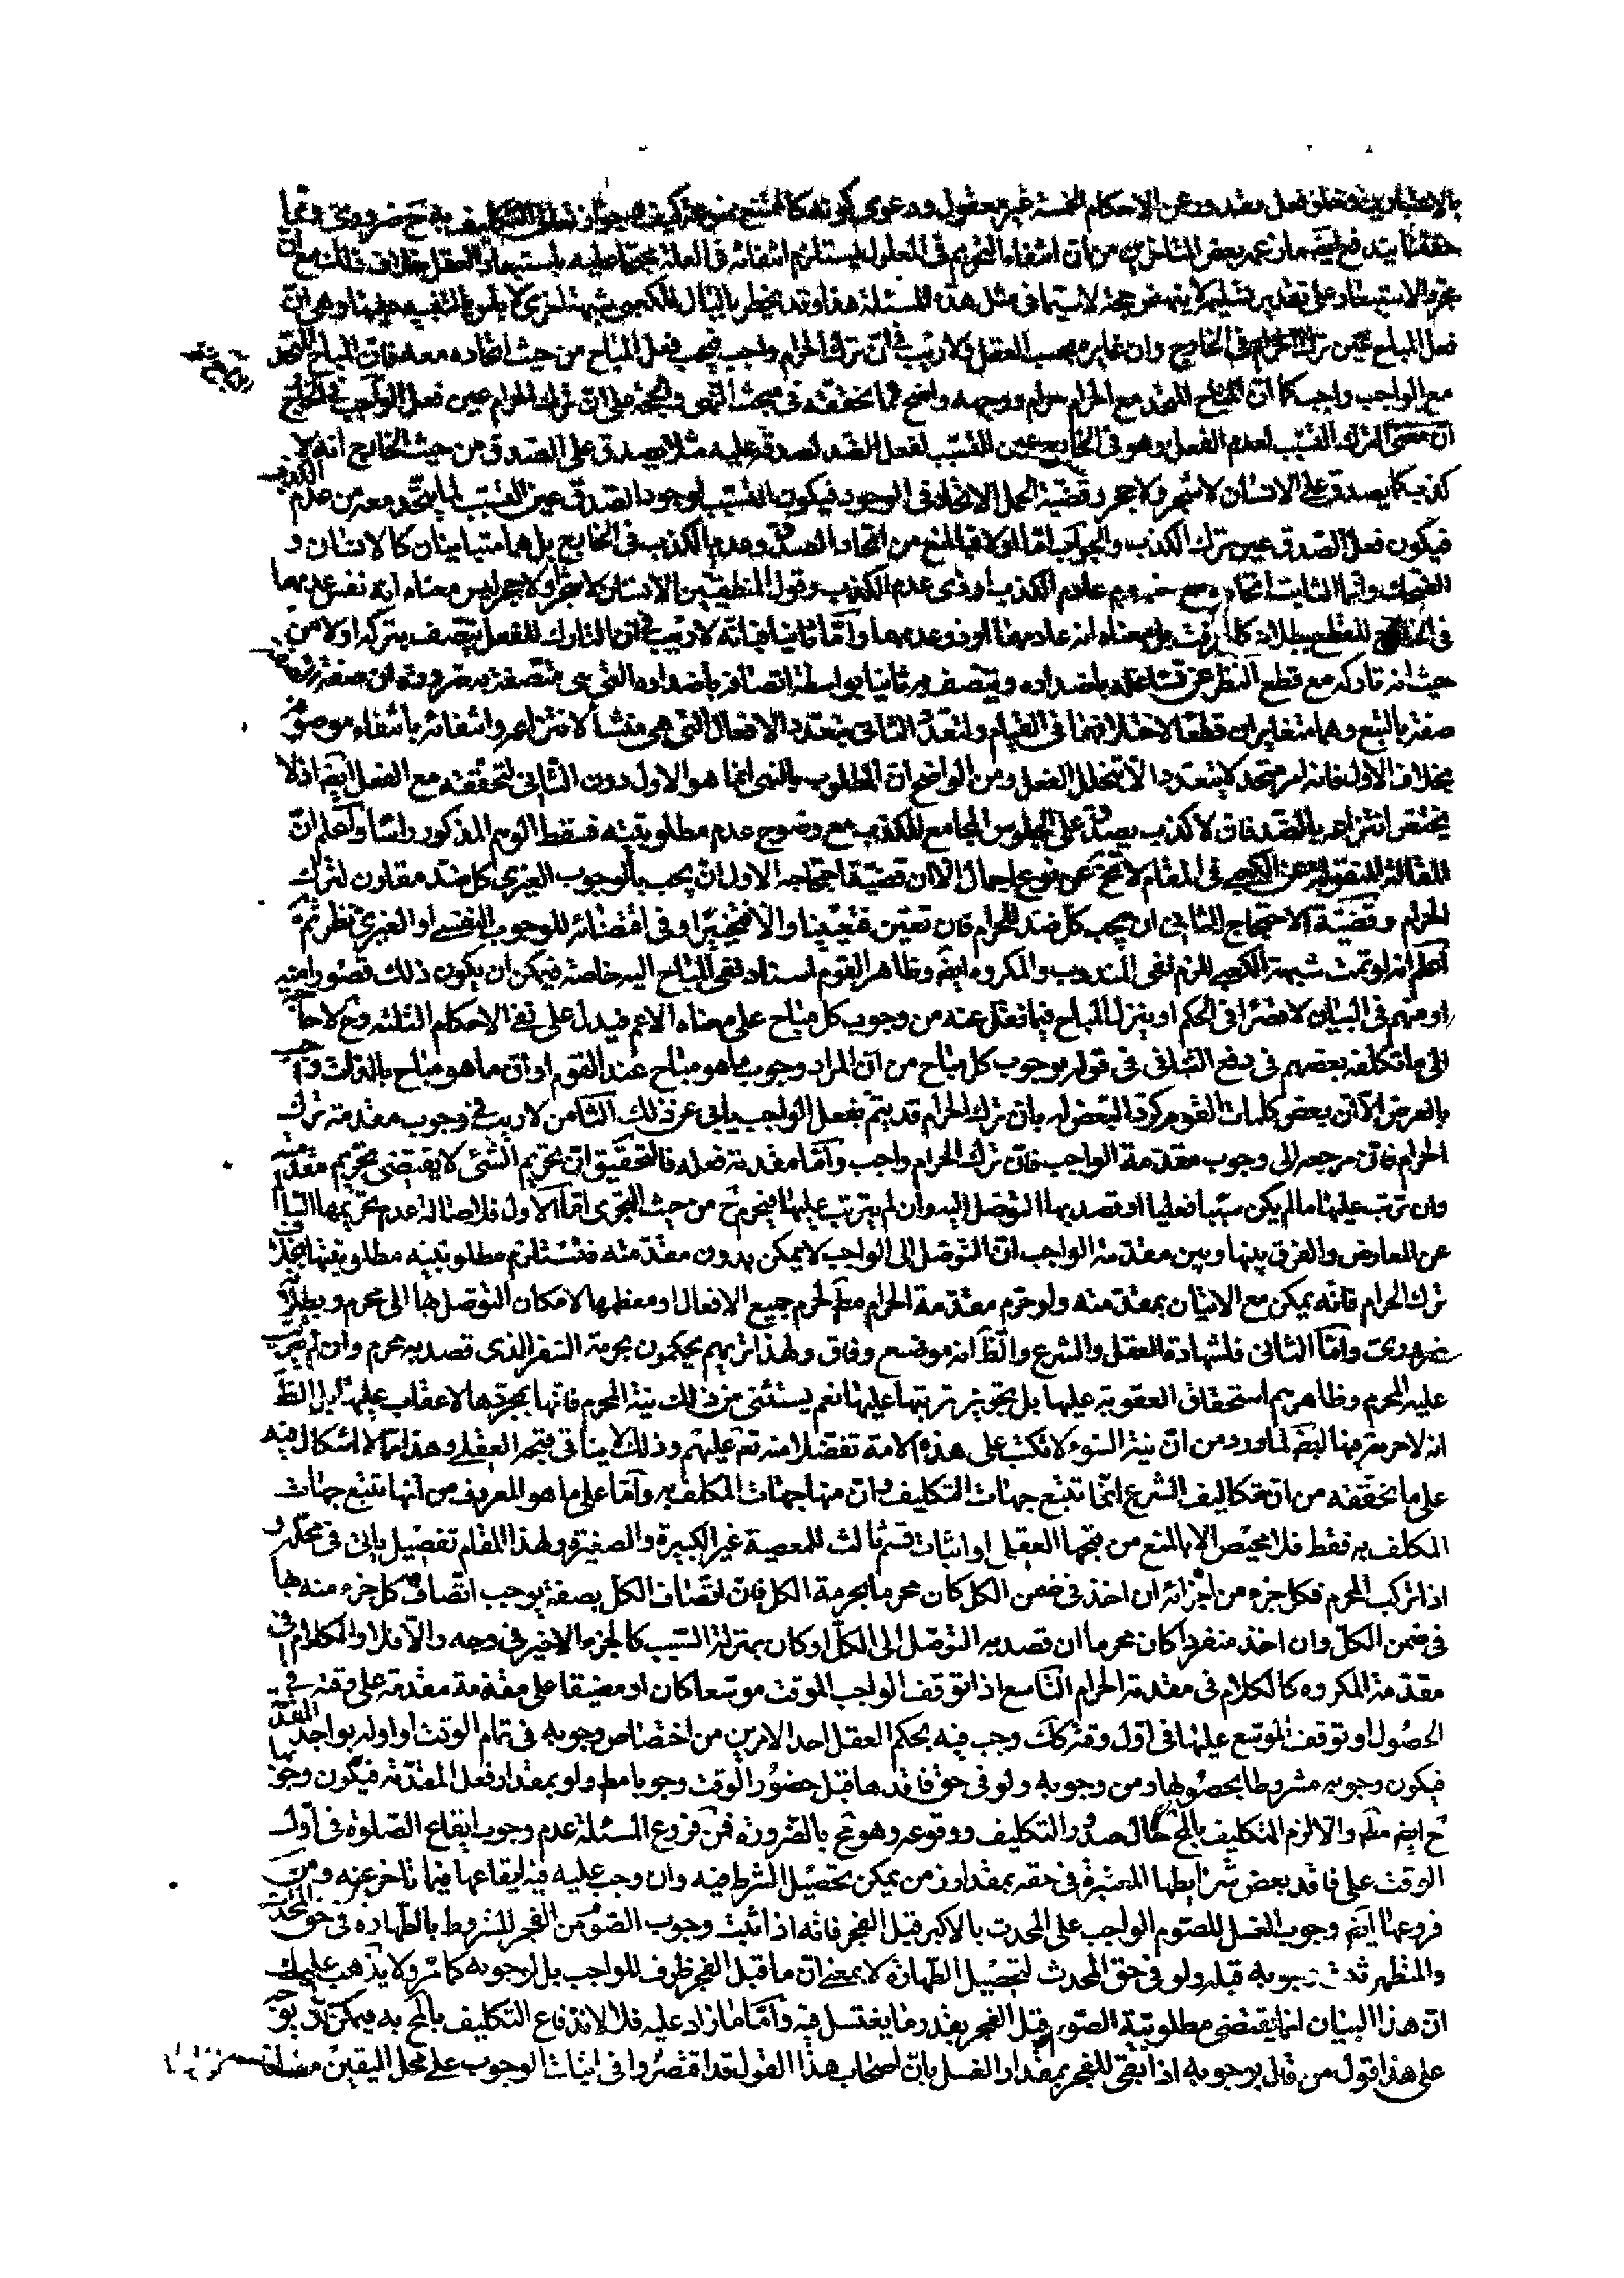 بالاعتبارين وخلو فعل مقدور عن الاحكام الخمسة غير معقول ودعوى كونه كالممتنع ممنوعة كيف وجواز تعلق التكليف به ح ضرورى ومما
حققنا يندفع ايضا ما زعمه بعض المتاخرين من ان انتفاء التحريم فى المعلول ليستلزم انتفائه فى العلة محتجا عليه باستبعاد العقل خلاف ذلك مع ان
مجرد الاستبعاد على تقدير تسليمه لا ينهض حجة لا سيما فى مثل هذه المسئلة هذا وقد يخطر بالبال للكعبى شبهة اخرى لا باس بالتنبيه عليها وهى ان
فعل المباح عين ترك الحرام فى الخارج وان غايره بحسب العقل ولا ريب فى ان ترك الحرام واجب فيجب فعل المباح من حيث اتحاده معه فان المباح المتحد
مع الواجب واجب كما ان المباح المتحد مع الحرام حرام ووجهه واضح مما نحققه فى مبحث النهى والحجة على ان ترك الحرام عين فعل الواجب فى الخارج
ان معنى الترك التسبب لعدم الفعل وهو فى الخارج عين التسبب لفعل الضد لصدقه عليه مثلا يصدق على الصدق من حيث الخارج انه لا
كذب كما يصدق على الانسان لا شجر ولا حجر وقضية الحمل الاتحاد فى الوجود فيكون التسبب لوجود الصدق عين التسبب لما يتحد معه من عدم الكذب
فيكون فعل الصدق عين ترك الكذب والجواب اما اولا فبالمنع من اتحاد الصدق وعدم الكذب فى الخارج بل هما متباينان كالانسان و
الضحك وانما الثابت اتحاده مع مفهوم عادم الكذب او ذى عدم الكذب وقول المنطقيين الانسان لا شجر ولا حجر ليس معناه انه نفس عدمهما
فى الخارج للقطع ببطلانه كما عرفت بل معناه انه عادمهما او ذو عدمهما واما ثانيا فبانه لا ريب فى ان التارك للفعل يتصف بتركه اولا من
حيث انه تاركه مع قطع النظر عن تشاغله باضداده ويتصف به ثانيا بواسطة اتصافه باضداده التى هى متصفة به ضرورة ان صفة الصفة
صفة بالتبع وهما متغايران قطعا لاختلافهما فى القيام ولتعدد الثانى بتعدد الافعال التى هى منشأ لانتزاعه وانتفائه بانتفاء موصوفه
بخلاف الاول فانه امر متحد لا يتعدد الا بتخلل الفعل ومن الواضح ان المطلوب بالنهى انما هو الاول دون الثانى لتحققه مع الفعل ايضا اذ لا
يختص انتزاعه بالضد فان لا كذب يصدق على الجلوس المجامع للكذب مع وضوح عدم مطلوبيته فسقط الوهم المذكور راسا واعلم ان
المقالة المنقولة عن الكعبى فى المقام لا تخ عن نوع اجمال الا ان قضية احتجاجه الاول ان يجب بالوجوب الغيرى كل ضد مقارن لترك
الحرام وقضية الاحتجاج الثانى ان يجب كل ضد للحرام فان تعين فتعيينا والا فتخييرا وفى اقتضائه للوجوب النفسى او الغيرى نظر ثم
اعلم انه لو تمت شبهة الكعبى للزم نفى المندوب والمكروه ايضا وظاهر القوم اسناد نفى المباح اليه خاصة فيمكن ان يكون ذلك قصورا منه
او منهم فى البيان لا قصرا فى الحكم او ينزل المباح فيما نقل عنه من وجوب كل مباح على معناه الاعم فيدل على نفى الاحكام الثلثة وح لا حاجة
الى ما تكلفه بعضهم فى دفع التنافى فى قوله بوجوب كل مباح من ان المراد وجوب ما هو مباح عند القوم او ان ما هو مباح بالذات واجب
بالعرض الا ان بعض كلمات القوم كرد البعض له بان ترك الحرام قد يتم بفعل الواجب يابى عن ذلك الثامن لا ريب فى وجوب مقدمة ترك
الحرام فان مرجعه الى وجوب مقدمة الواجب فان ترك الحرام واجب واما مقدمة فعله فالتحقيق ان تحريم الشئ لا يقتضى تحريم مقدمته
وان ترتب عليها ما لم يكن سببا فعليا او قصد بها التوصل اليه وان لم يترتب عليها فيحرم ح من حيث التجرى اما الاول فلاصالة عدم تحريمها السالم
عن المعارض والفرق بينها وبين مقدمة الواجب ان التوصل الى الواجب لا يمكن بدون مقدمته فتستلزم مطلوبيته مطلوبيتها بخلاف
ترك الحرام فانه يمكن مع الاتيان بمقدمته ولو حرم مقدمة الحرام مط لحرم جميع الافعال او معظمها لامكان التوصل بها الى محرم وبطلانه
ضرورى واما الثانى فلشهادة العقل والشرع والظ انه موضع وفاق ولهذا تريهم يحكمون بحرمة السفر الذى قصد به محرم وان لم يترتب
عليه المحرم وظاهرهم استحقاق العقوبة عليها بل بتجويز ترتبها عليها نعم يستثنى من ذلك نية المحرم فانها بمجردها لا عقاب عليها بل الظ
انه لا حرمة فيها ايضا لما ورد من ان نية السوء لا تكتب على هذه الامة تفضلا منه تع عليهم وذلك لا ينافى قبحه العقلى وهذا مما لا اشكال فيه
على ما نحققه من ان تكاليف الشرع انما تتبع جهات التكليف وان منها جهات المكلف به واما على ما هو المعروف من انها تتبع جهات
المكلف به فقط فلا محيص الا بالمنع من قبحها العقلى او اثبات قسم ثالث للمعصية غير الكبيرة والصغيرة ولهذا المقام تفصيل ياتى فى محله و
اذا تركب المحرم فكل جزء من اجزائه ان اخذ فى ضمن الكل كان محرما بحرمة الكل فان اتصاف الكل بصفة يوجب اتصاف كل جزء منه بها
فى ضمن الكل وان اخذ منفردا كان محرما ان قصد به التوصل الى الكل او كان بمنزلة السبب كالجزء الاخير فى وجه والا فلا والكلام فى
مقدمة المكروه كالكلام فى مقدمة الحرام التاسع اذا توقف الواجب الموقت موسعا كان او مضيقا على مقدمة مقدمة على وقته فى
الحصول او توقف الموسع عليها فى اول وقته كك وجب فيه بحكم العقل احد الامرين من اختصاص وجوبه فى تمام الوقت او اوله بواجد المقدمة
فيكون وجوبه مشروطا بحصولها ومن وجوبه ولو فى حق فاقدها قبل حضور الوقت وجوبا مط ولو بمقدار فعل المقدمة فيكون وجوبها
ح ايضا مط والا لزم التكليف بالمح حال صدور التكليف ووقوعه وهو مح بالضرورة فمن فروع المسئلة عدم وجوب ايقاع الصلوة فى اول
الوقت على فاقد بعض شرايطها المعتبرة فى حقه بمقدار زمن يمكن تحصيل الشرط فيه وان وجب عليه فيه ايقاعها فيما تاخر عنه ومن
فروعها ايضا وجوب الغسل للصوم الواجب على المحدث بالاكبر قبل الفجر فانه اذا ثبت وجوب الصوم من الفجر المشروط بالطهارة فى حق المحدث
والمتطهر ثبت وجوبه قبله ولو فى حق المحدث لتحصيل الطهارة لا بمعنى ان ما قبل الفجر ظرف للواجب بل لوجوبه كما مر ولا يذهب عليك
ان هذا البيان انما يقتضى مطلوبية الصوم قبل الفجر بقدر ما يغتسل فيه واما ما زاد عليه فلا لاندفاع التكليف بالمح به فيمكن ان يوجه
على هذا قول من قال بوجوبه اذا بقى للفجر بمقدار الغسل بان اصحاب هذا القول قد اقتصروا فى اثبات الوجوب على محل اليقين